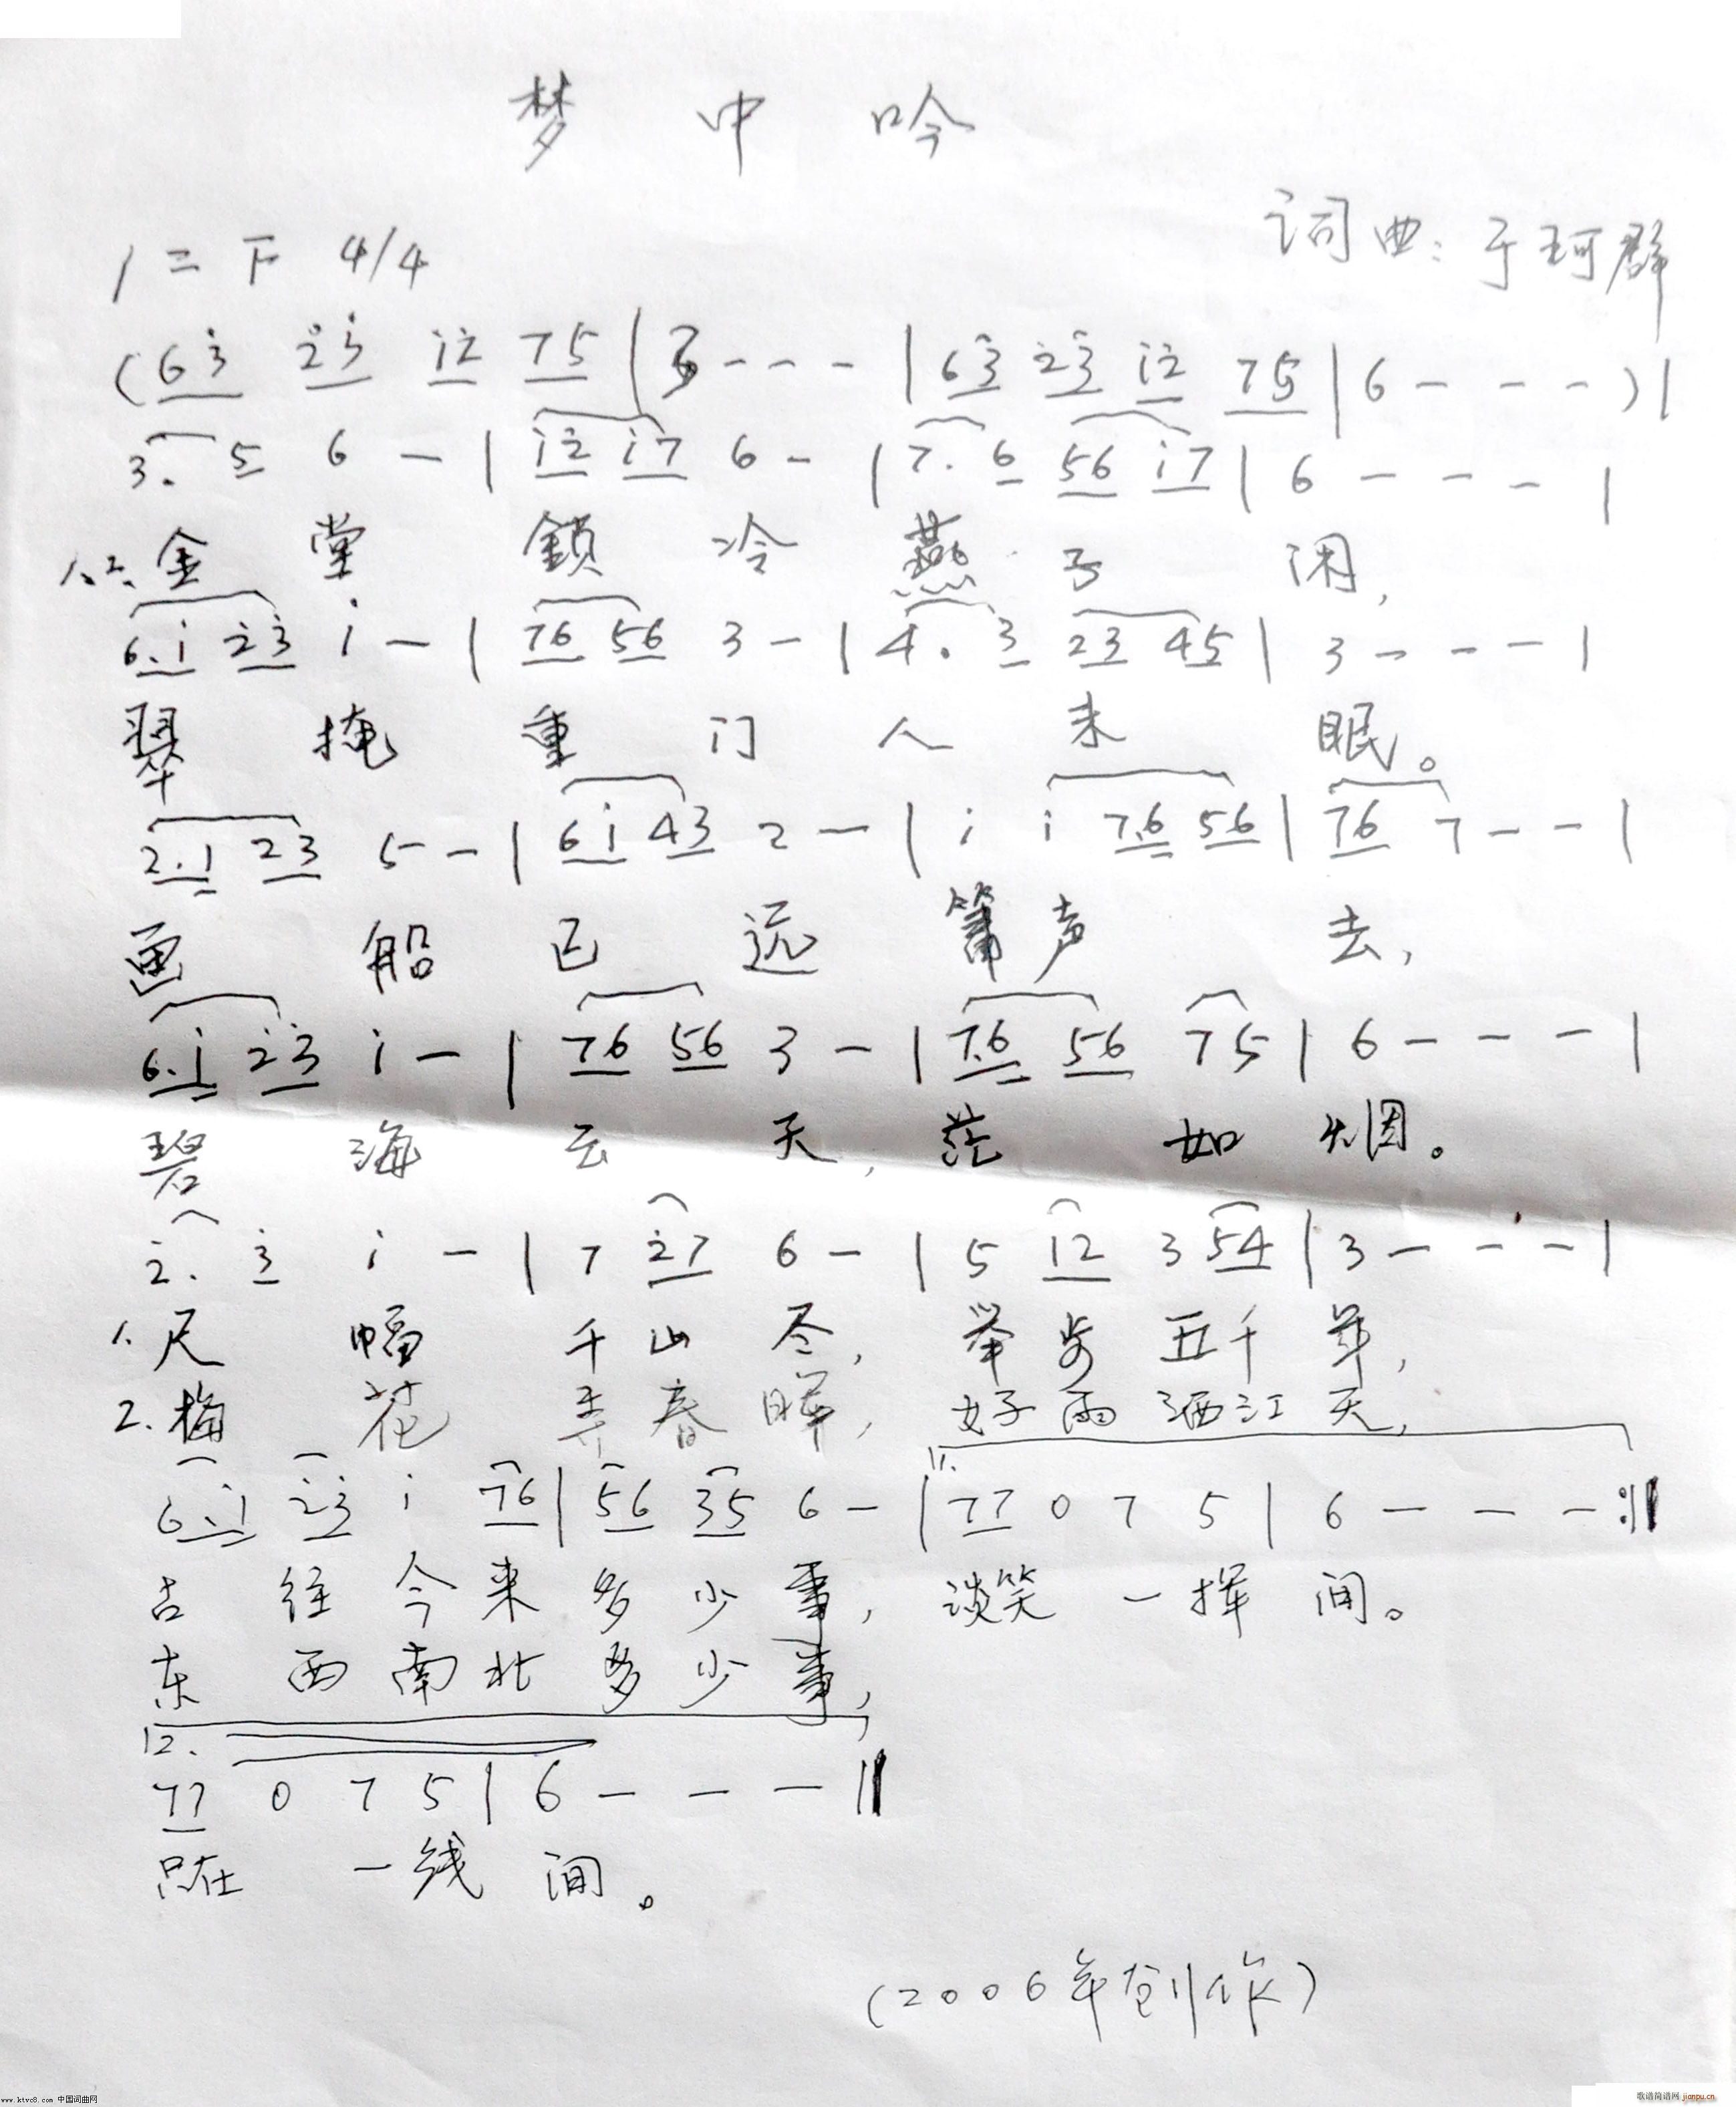 梦中吟
词曲：于珂群
1=F 4/4
(6 3̇ 2̇ 3̇ 1̇ 2̇ 7 5 | 3 - - - | 6 3̇ 2̇ 3̇ 1̇ 2̇ 7 5 | 6 - - - ) |
3. 5 6 - | 1̇ 2̇ 1̇ 7 6 - | 7. 6 5 6 1̇ 7 | 6 - - - |
1.2. 金堂鎖冷燕子闲，
6. 1̇ 2̇ 3̇ 1̇ - | 7 6 5 6 3 - | 4. 3 2 3 4 5 | 3 - - - |
翠掩重门人未眠。
2. 1 2 3 5 - | 6 1̇ 4 3 2 - | 1̇ 1̇ 7. 6 5 6 | 7 6 7 - - |
画船已远箫声去，
6. 1̇ 2̇ 3̇ 1̇ - | 7 6 5 6 3 - | 7. 6 5 6 7 5 | 6 - - - |
碧海云天，茫如烟。
2̇. 3̇ 1̇ - | 7 2̇ 7 6 - | 5 1 2 3 5 4 | 3 - - - |
1. 尺幅千山尽，举步五千年，
2. 梅花弄春晖，好雨洒江天，
1.
6. 1̇ 2̇ 3̇ 1̇ 7 6 | 5 6 3 5 6 - | 7 7 0 7 5 | 6 - - - :||
古往今来多少事，谈笑一挥间。
东西南北多少事，
2.
7 7 0 7 5 | 6 - - - ||
只在一线间。
(2006年创作)
www.ktvc8.com 中国词曲网
歌谱简谱网 jianpu.cn